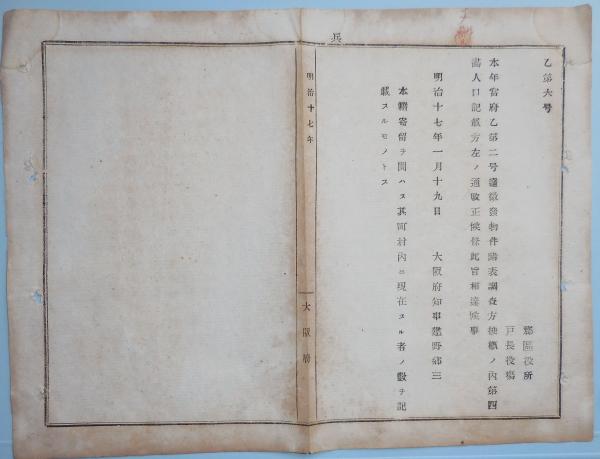 兵
乙第六号
郡區役所
戸長役場
本年當府乙第二号達徴發物件諸表調査方心得ノ内第四
畵人口記載方左ノ通改正候條此旨相達候事
明治十七年一月十九日 大阪府知事建野郷三
本籍寄留ヲ問ハス其町村内ニ現在スル者ノ數ヲ記
載スルモノトス
明治十七年
大阪府